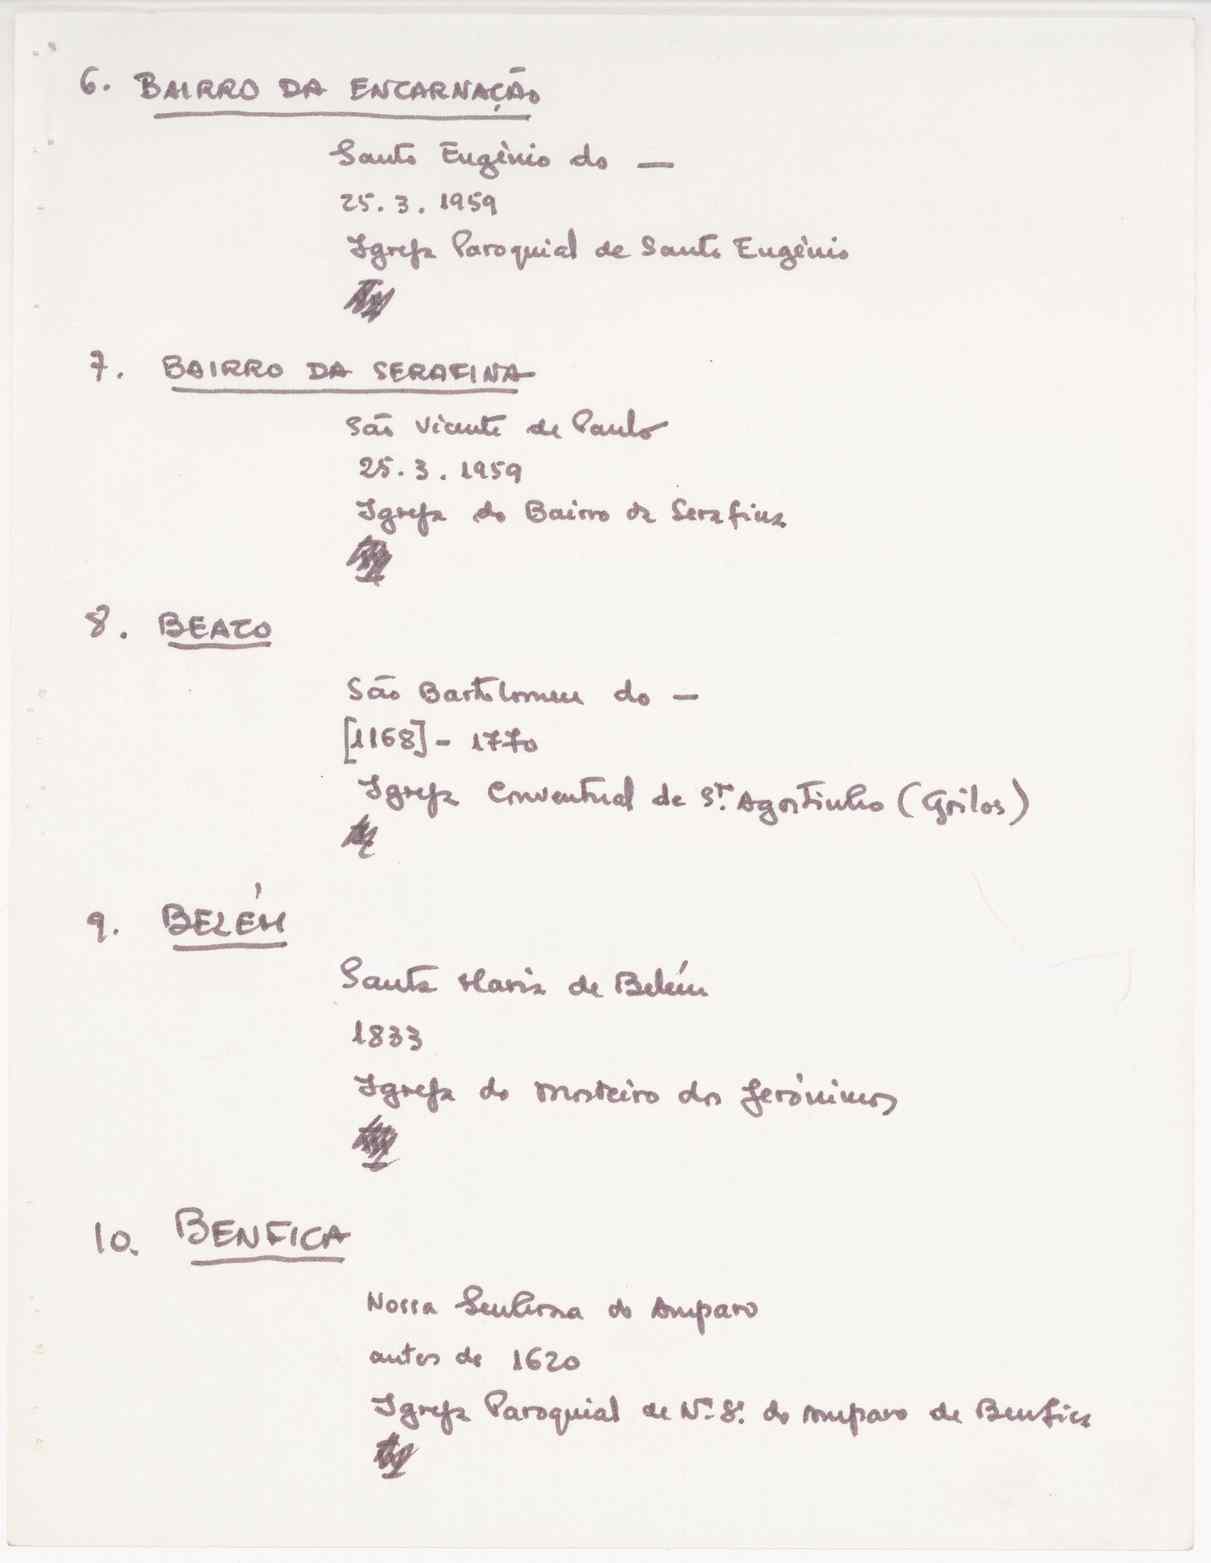 6. BAIRRO DA ENCARNAÇÃO
Santo Eugènio do —
25.3.1959
Igreja Paroquial de Santo Eugènio
7. BAIRRO DA SERAFINA
São Vicente de Paulo
25.3.1959
Igreja do Bairro da Serafina
8. BEATO
São Bartolomeu do —
[1168] - 1770
Igreja Conventual de St.º Agostinho (Grilos)
9. BELÉM
Santa Maria de Belém
1833
Igreja do Mosteiro dos Jerónimos
10. BENFICA
Nossa Senhora do Amparo
antes de 1620
Igreja Paroquial de N.ª S.ª do Amparo de Benfica